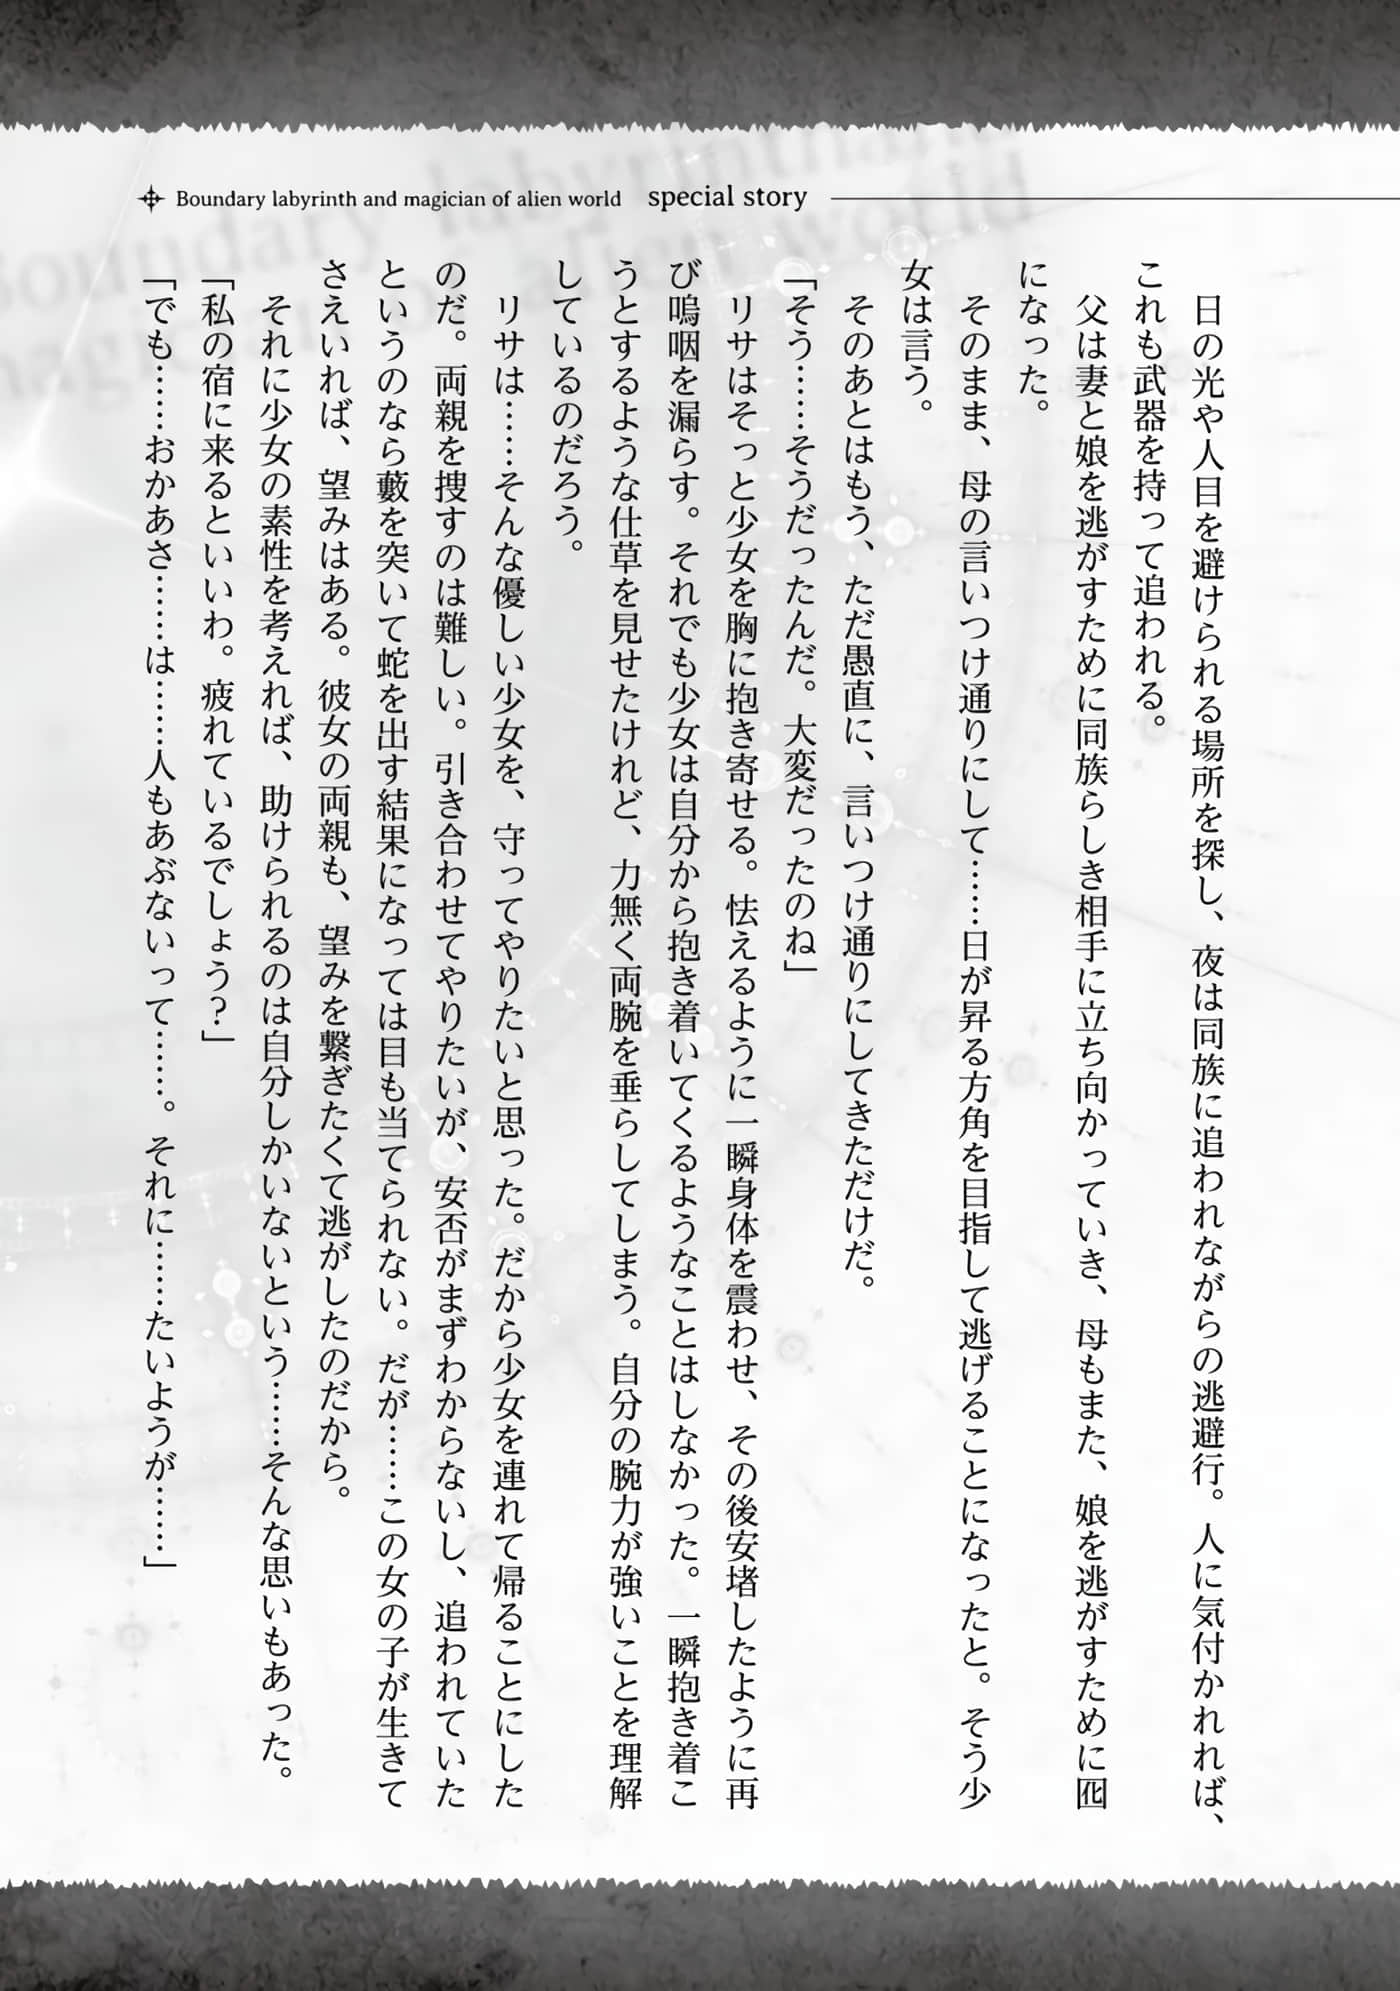 Boundary labyrinth and magician of alien world special story
　日の光や人目を避けられる場所を探し、夜は同族に追われながらの逃避行。人に気付かれれば、
これも武器を持って追われる。
　父は妻と娘を逃がすために同族らしき相手に立ち向かっていき、母もまた、娘を逃がすために囮
になった。
　そのまま、母の言いつけ通りにして……日が昇る方角を目指して逃げることになったと。そう少
女は言う。
　そのあとはもう、ただ愚直に、言いつけ通りにしてきただけだ。
「そう……そうだったんだ。大変だったのね」
　リサはそっと少女を胸に抱き寄せる。怯えるように一瞬身体を震わせ、その後安堵したように再
び嗚咽を漏らす。それでも少女は自分から抱き着いてくるようなことはしなかった。一瞬抱き着こ
うとするような仕草を見せたけれど、力無く両腕を垂らしてしまう。自分の腕力が強いことを理解
しているのだろう。
　リサは……そんな優しい少女を、守ってやりたいと思った。だから少女を連れて帰ることにした
のだ。両親を捜すのは難しい。引き合わせてやりたいが、安否がまずわからないし、追われていた
というのなら藪を突いて蛇を出す結果になっては目も当てられない。だが……この女の子が生きて
さえいれば、望みはある。彼女の両親も、望みを繋ぎたくて逃がしたのだから。
　それに少女の素性を考えれば、助けられるのは自分しかいないという……そんな思いもあった。
「私の宿に来るといいわ。疲れているでしょう？」
「でも……おかあさ……は……人もあぶないって……。それに……たいようが……」